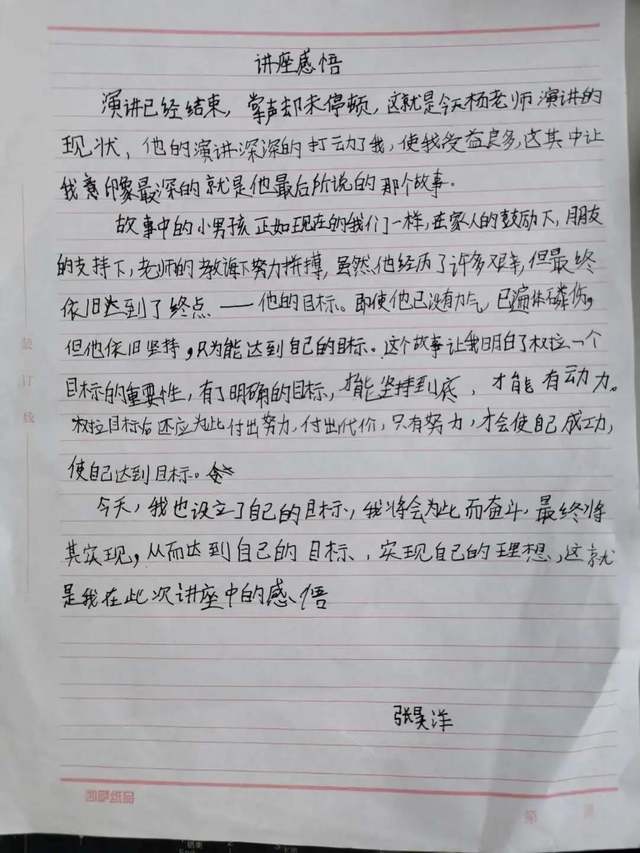 讲座感悟
演讲已经结束，掌声却未停顿，这就是今天杨老师演讲的
现状，他的演讲深深的打动了我，使我受益良多，这其中让
我意印象最深的就是他最后所说的那个故事.
故事中的小男孩正如现在的我们一样，在家人的鼓励下，朋友
的支持下，老师的教诲下努力拼搏，虽然他经历了许多艰辛，但最终
依旧达到了终点——他的目标。即使他已没有力气，已遍体磷伤，
但他依旧坚持，只为能达到自己的目标。这个故事让我明白了权拉一个
目标的重要性，有了明确的目标，才能坚持到底，才能有动力。
权拉目标后还应为此付出努力，付出代价，只有努力，才会使自己成功，
使自己达到目标。
今天，我也设立了自己的目标，我将会为此而奋斗，最终将
其实现，从而达到自己的目标、实现自己的理想，这就
是我在此次讲座中的感悟
张昊洋
装
订
线
纸品
第